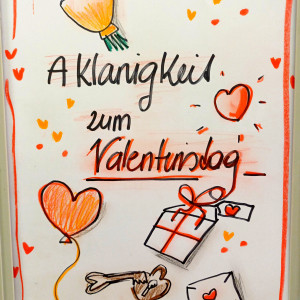 A Klanigkeit
zum
Valentinstag